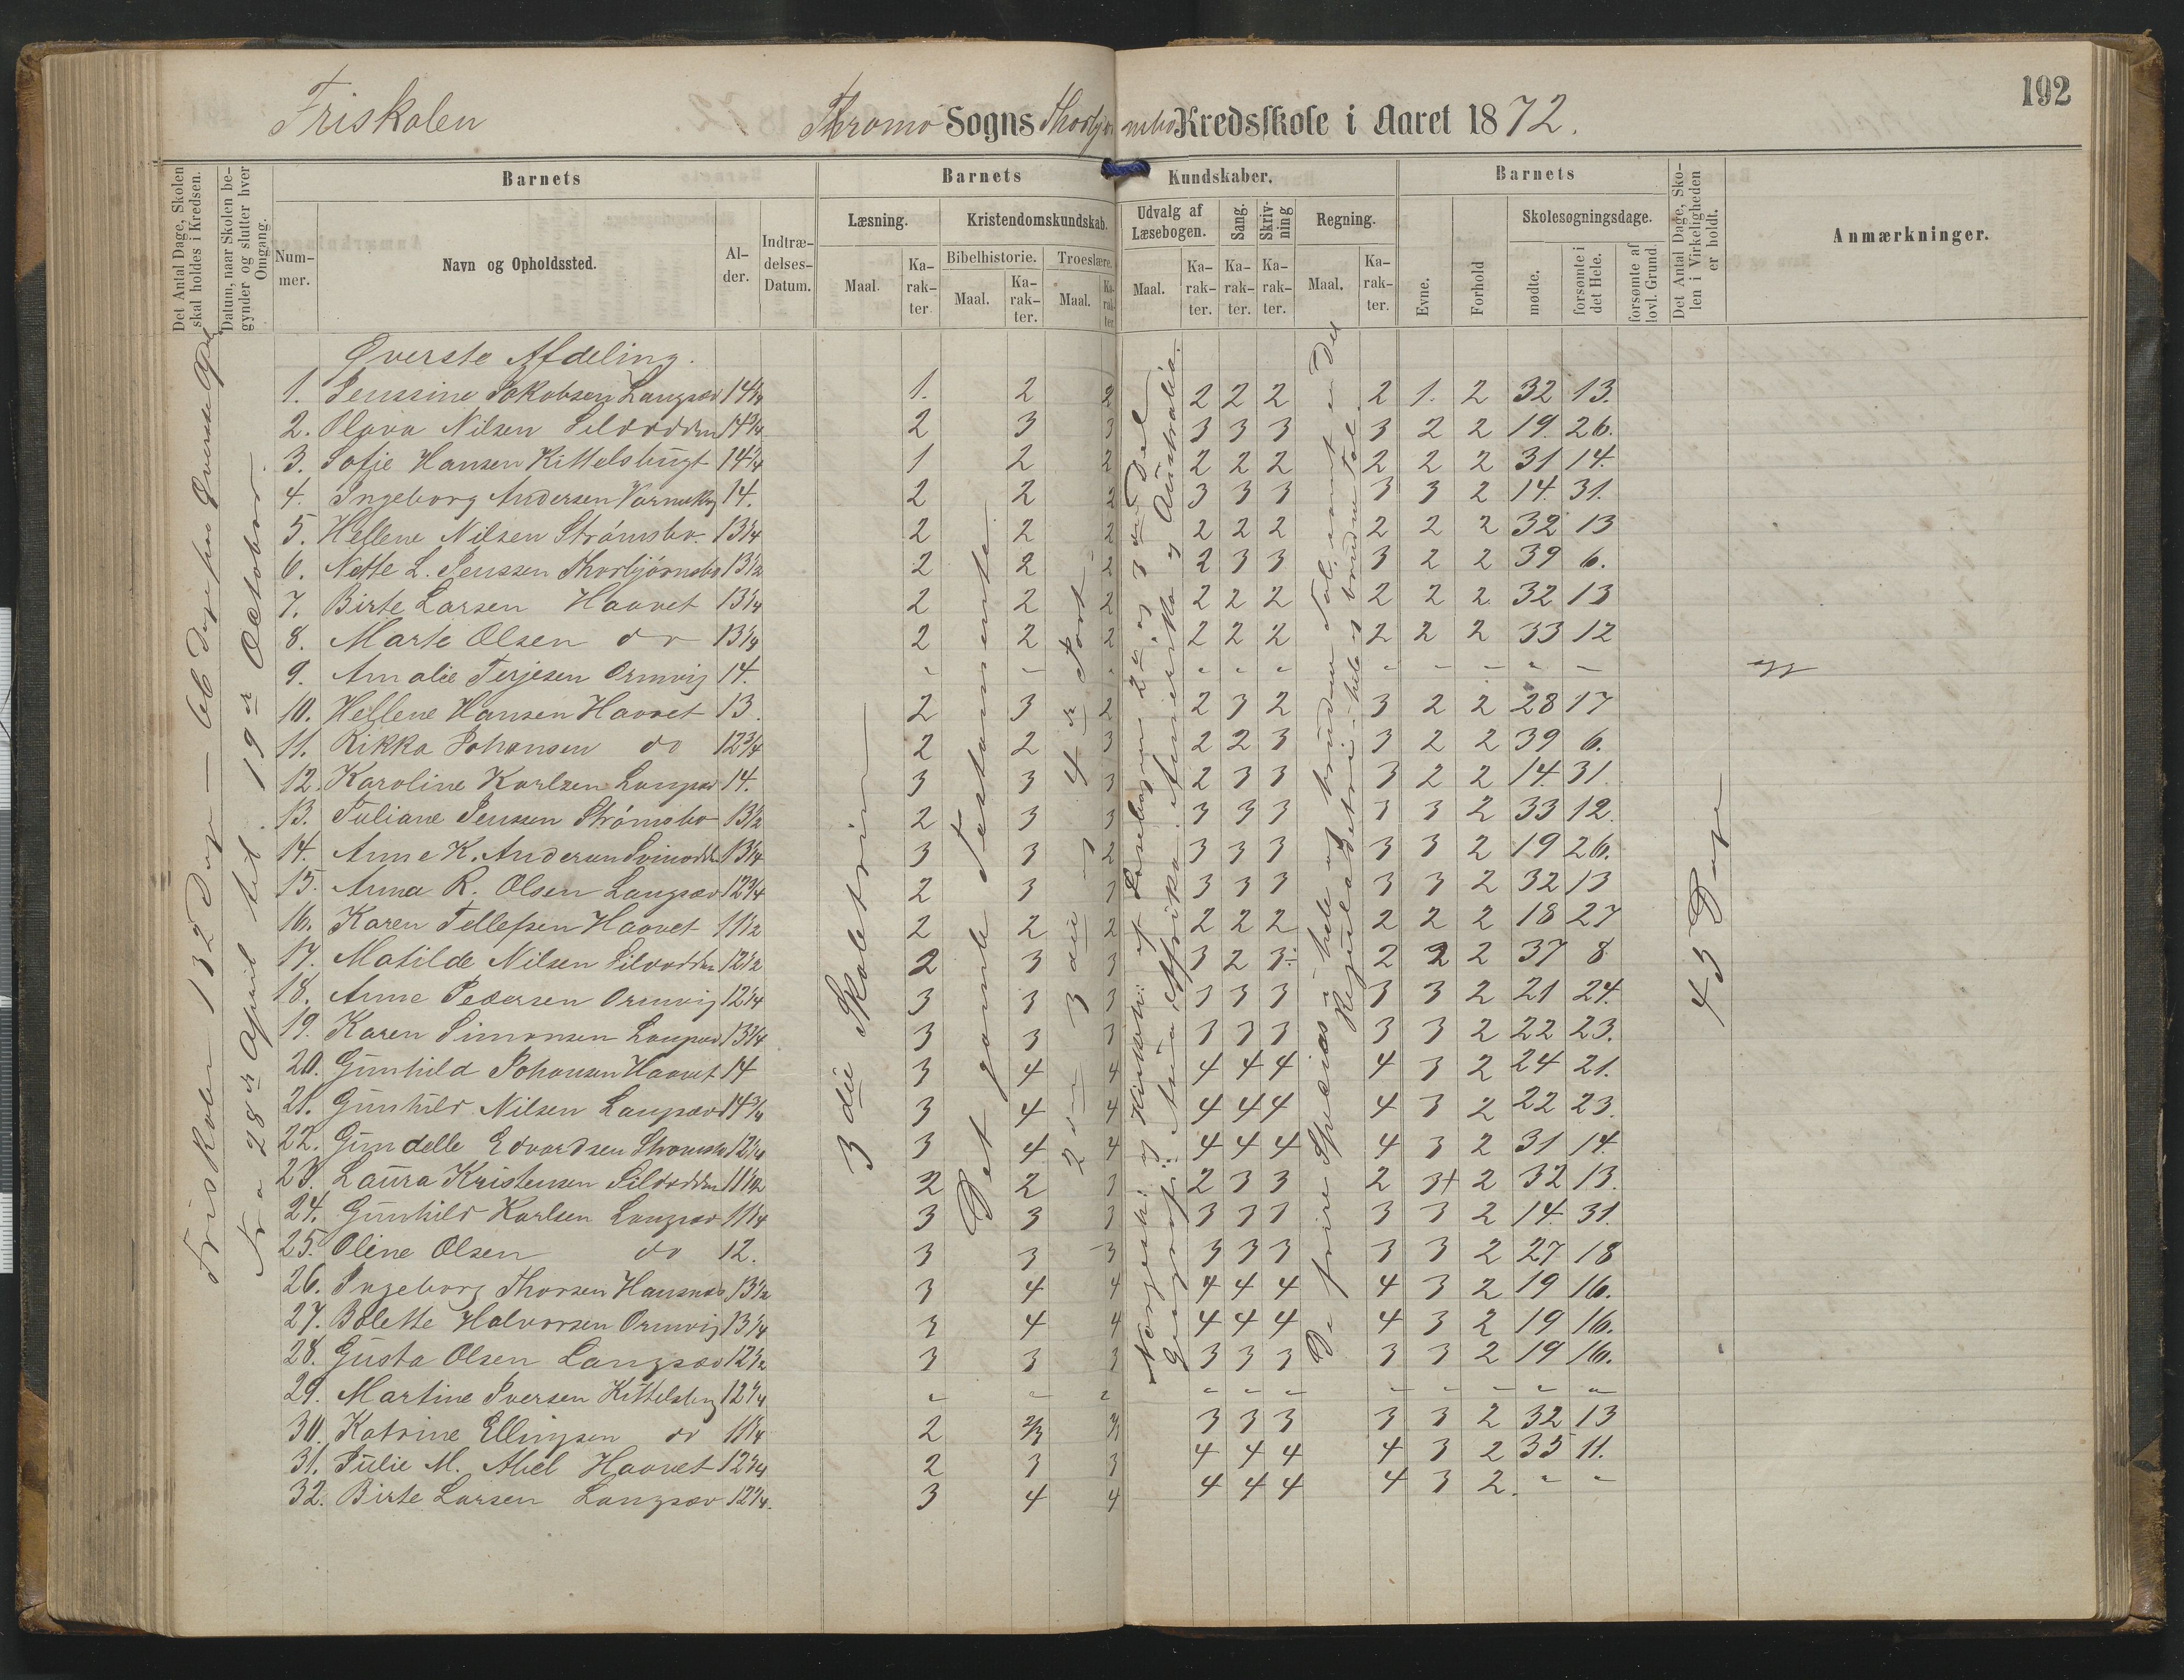 192
Friskolen Tromø Sogns Thorbjørnsbo Kredsskole i Aaret 1872.
Det Antal Dage, Skolen skal holdes i Kredsen.
Datum, naar Skolen begynder og slutter hver Omgang.
Barnets
Nummer.
Navn og Opholdssted.
Alder.
Indtrædelses-Datum.
Barnets Kundskaber.
Læsning.
Maal.
Karakter
Kristendomskundskab.
Bibelhistorie.
Maal.
Karakter.
Troeslære.
Maal.
Karakter.
Udvalg af Læsebogen.
Maal.
Karakter.
Sang.
Karakter.
Skrivning
Karakter.
Regning.
Maal.
Karakter.
Barnets
Evne.
Forhold
Skolesøgningsdage.
mødte.
forsømte i det Hele.
forsømte af lovl. Grund.
Det Antal Dage, Skolen i Virkeligheden er holdt.
Anmærkninger.
Friskolen 132 Dage – 66 Dage for Øverste
Fra 28de April til 19de October.
3die Skoletrin
Det gamle Testamente
2den 3die og 4de Part
Asia, Afrika, Amerika og Australia.
43 Dage
Øverste Afdeling.
1. Jenssine Jakobsen Langsæv 14 3/4 1. 2 2 2 2 2 2 1. 2 32 13.
2. Olava Nilsen Sildodden 14 3/4 2 3 3 3 3 3 3 2 2 19. 26.
3. Sofie Hansen Kittelsbugt 14 3/4 1 2 2 2 2 2 2 2 2 31 14.
4. Ingeborg Andersen 14. 2 2 2 3 3 3 3 3 2 14. 31.
5. Hellene Nilsen Strømsbo. 13 3/4 2 2 2 2 2 2 2 2 2 32 13
6. Nette L. Jenssen Thorbjørnsbo 13 1/2 2 2 2 2 3 3 3 2 2 39 6.
7. Birte Larsen Haavet 13 3/4 2 2 2 2 2 2 2 2 2 32 13
8. Marte Olsen do 13 1/4 2 2 2 2 2 2 2 2 2 33 12
9. Amalie Terjesen Ormvig 14. - - - - - - - - - - -
10. Hellene Hansen Haavet 13. 2 3 2 2 3 2 3 2 2 28 17
11. Rikka Johansen do 12 3/4 2 2 3 2 2 3 3 2 2 39 6.
12. Karoline Karlsen Langsæv 14. 3 3 3 2 3 3 3 2 2 14. 31
13. Juliane Jenssen Strømsbo 13 1/2 2 3 3 3 3 3 3 3 2 33 12.
14. Anne K. Andersen Svinodden 13 1/4 3 3 2 3 3 3 3 3 2 19 26.
15. Anna R. Olsen Langsæv 12 3/4 2 3 3 3 3 3 3 3 2 32 13
16. Karen Tellefsen Haavet 11 1/2 2 2 2 2 2 2 2 2 2 18 27
17. Matilde Nilsen Sildodden 12 1/2 2 3 3 3 2 3÷ 2 2 2 37 8
18. Anne Pedersen Ormvig 12 1/4 3 3 3 3 3 3 3 3 2 21 24.
19. Karen Simonsen Langsæv 13 1/4 3 3 3 3 3 3 3 3 2 22 23.
20. Gunhild Johansen Haavet 14 3 4 4 4 4 4 4 3 2 24 21.
21. Gunhild Nilsen Langsæv 14 3/4 3 4 4 4 4 4 4 3 2 22 23.
22. Gundelle Edvardsen Strømsbo 12 1/4 3 4 4 4 4 4 4 3 2 31 14.
23. Laura Kristensen Sildodden 11 1/2 2 2 3 2 3 3 2 3+ 2 32 13.
24. Gunhild Karlsen Langsæv 11 1/4 3 3 3 3 3 3 3 3 2 14. 31.
25. Oline Olsen do 12. 3 3 3 3 3 3 3 3 2 27 18
26. Ingeborg Thorsen 13 1/2 3 4 4 4 4 4 4 3 2 19 16.
27. Bolette Halvorsen Ormvig 13 1/4 3 4 4 4 4 4 4 3 2 19 16.
28. Gusta Olsen Langsæv 12 1/2 3 3 3 3 3 3 3 3 2 19 16.
29. Martine Iversen Kittelsbug 12 1/4 - - - - - - - - - - -
30. Katrine Ellingsen do 11 1/4 2 2/3 3 3 3 3 3 2 32 13
31. Julie M. Abel Haavet 12 3/4 2 3 3 4 4 4 4 3 2 35 11.
32. Birte Larsen Langsæv 12 1/4. 3 4 4 4 4 4 4 3 2. - -